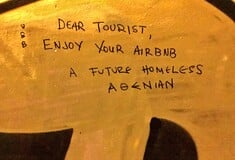 DEAR TOURIST,
ENJOY YOUR AIRBNB
A FUTURE HOMELESS
AΘENIAN